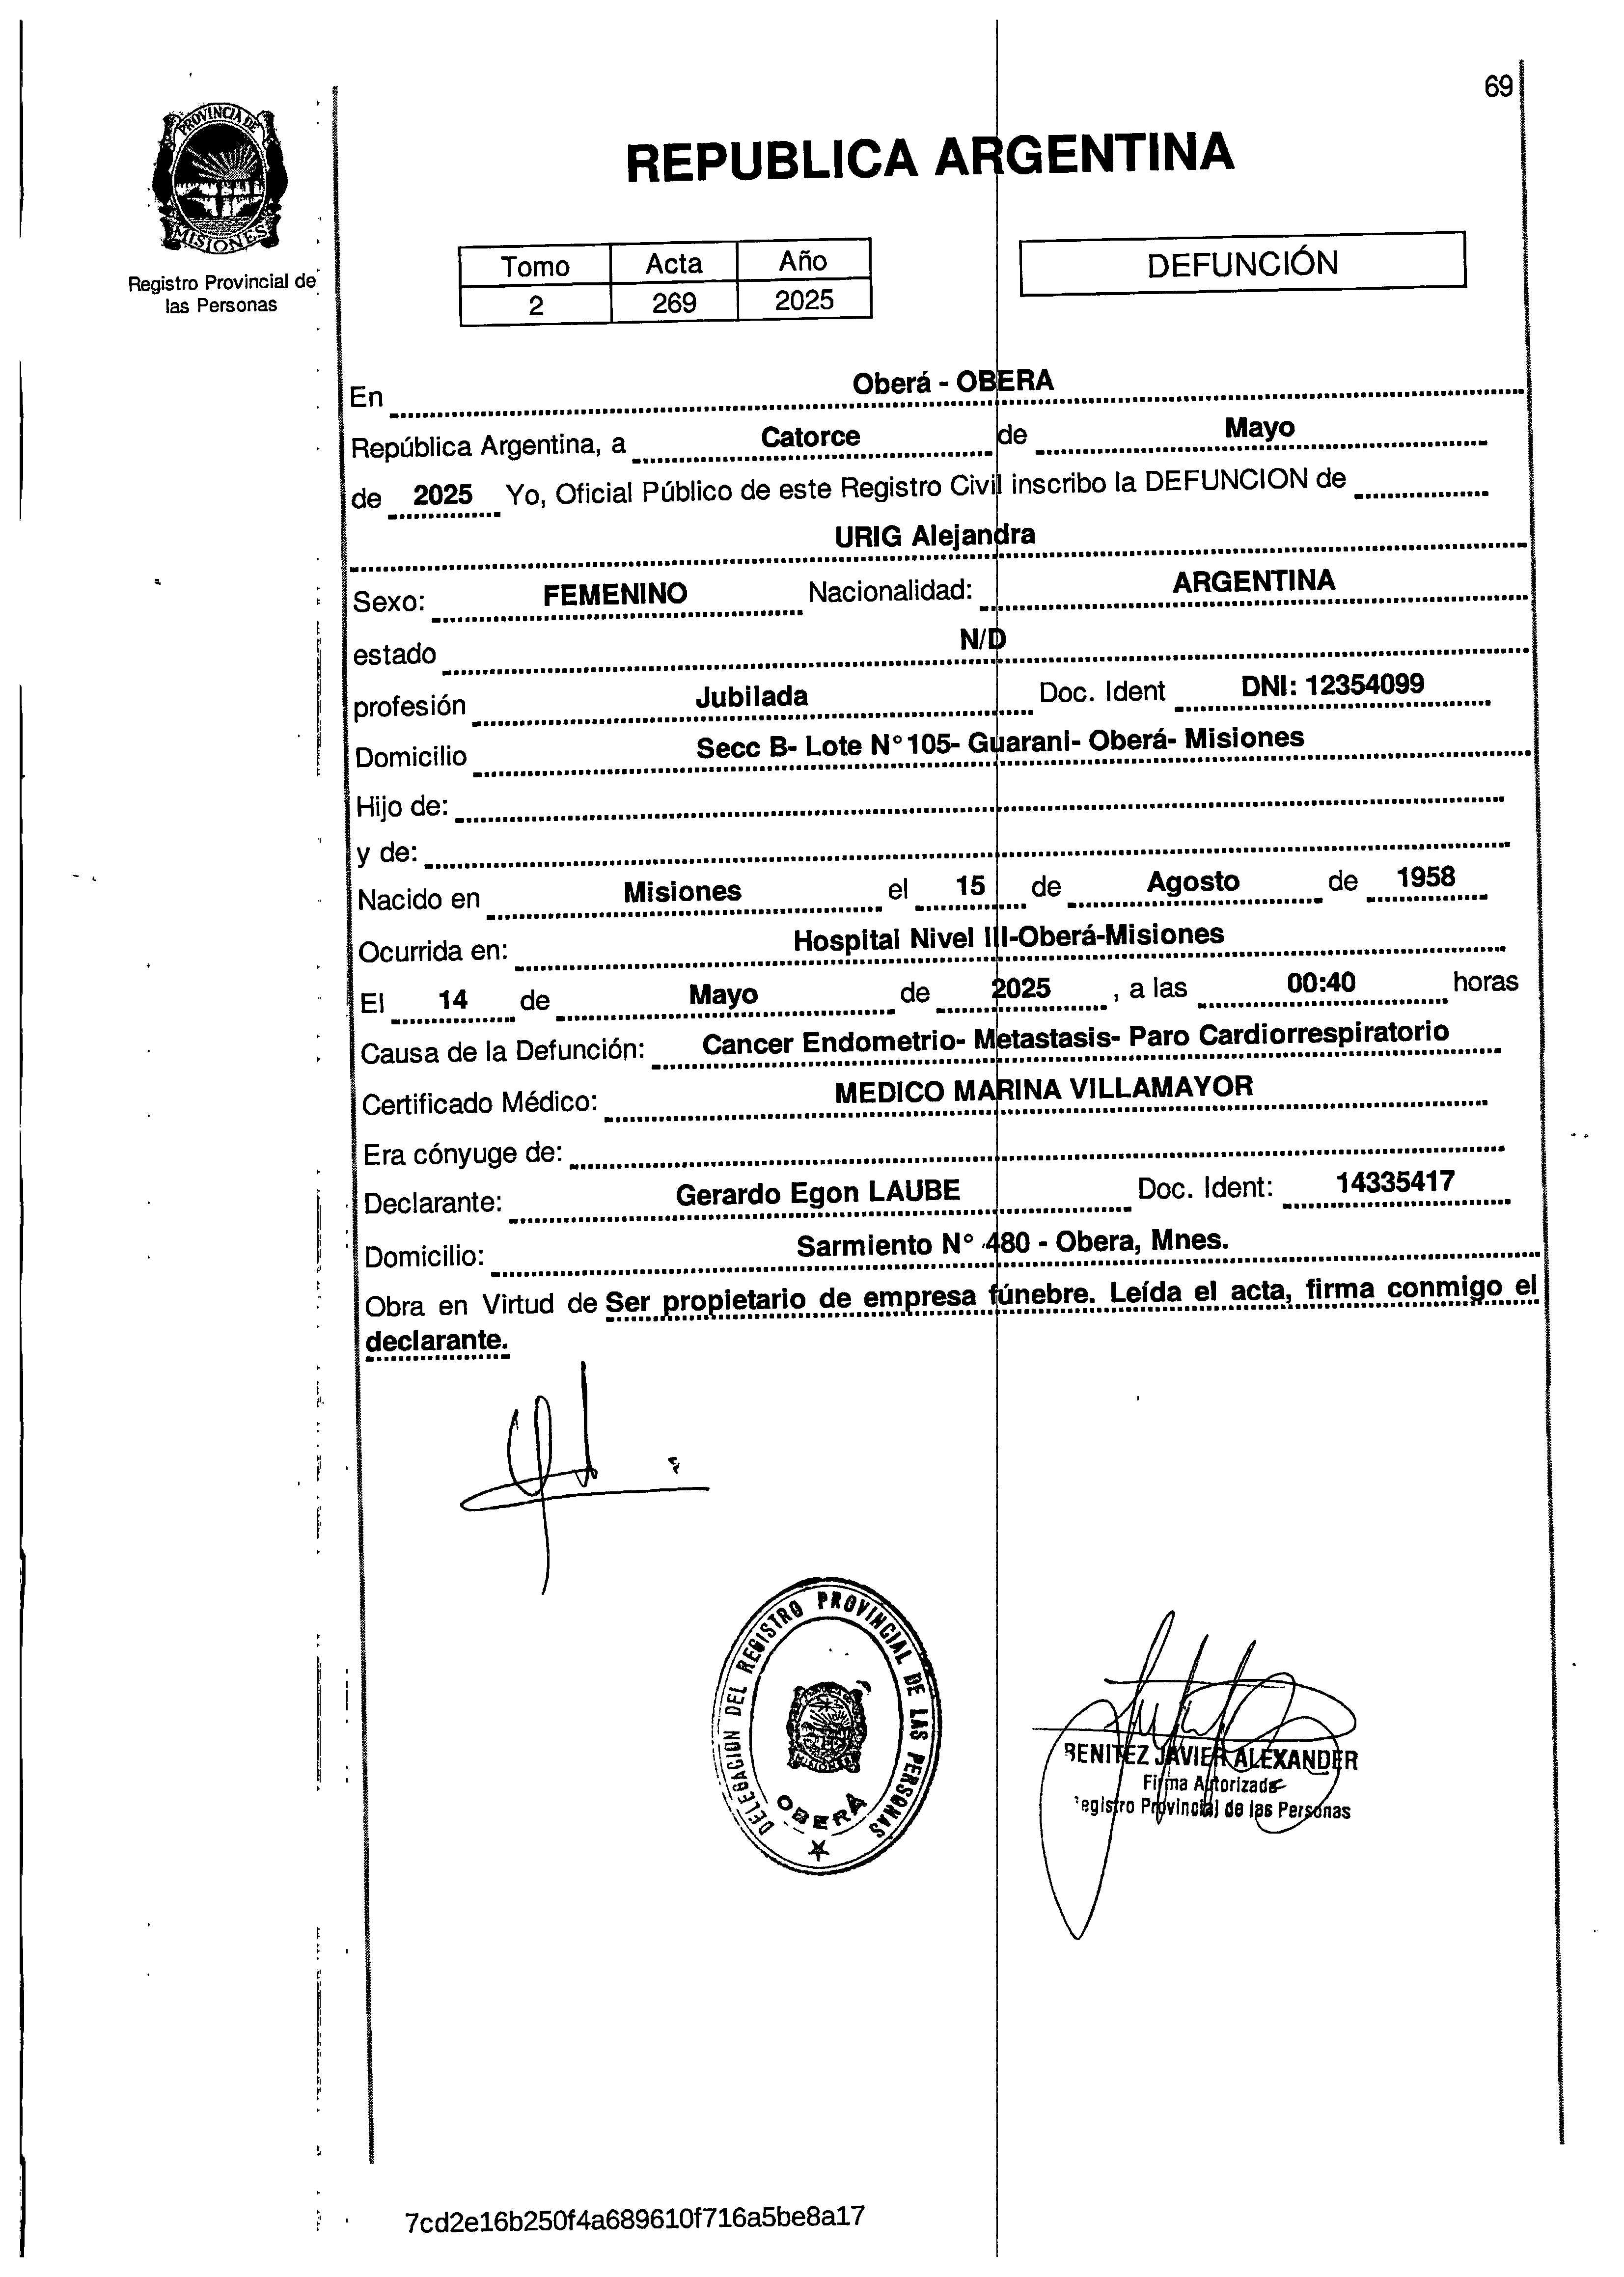 69
PROVINCIA DE
MISIONES
Registro Provincial de
las Personas
REPUBLICA ARGENTINA
Tomo Acta Año
2 269 2025
DEFUNCIÓN
En Oberá - OBERA
República Argentina, a Catorce de Mayo
de 2025 Yo, Oficial Público de este Registro Civil inscribo la DEFUNCION de
URIG Alejandra
Sexo: FEMENINO Nacionalidad: ARGENTINA
estado N/D
profesión Jubilada Doc. Ident DNI: 12354099
Domicilio Secc B- Lote N° 105- Guarani- Oberá- Misiones
Hijo de:
y de:
Nacido en Misiones el 15 de Agosto de 1958
Ocurrida en: Hospital Nivel III-Oberá-Misiones
El 14 de Mayo de 2025 , a las 00:40 horas
Causa de la Defunción: Cancer Endometrio- Metastasis- Paro Cardiorrespiratorio
Certificado Médico: MEDICO MARINA VILLAMAYOR
Era cónyuge de:
Declarante: Gerardo Egon LAUBE Doc. Ident: 14335417
Domicilio: Sarmiento N° 480 - Obera, Mnes.
Obra en Virtud de Ser propietario de empresa fúnebre. Leída el acta, firma conmigo el
declarante.
DELEGACION DEL REGISTRO PROVINCIAL DE LAS PERSONAS
OBERÁ
BENITEZ JAVIER ALEXANDER
Firma Autorizada
egistro Provincial de las Personas
7cd2e16b250f4a689610f716a5be8a17